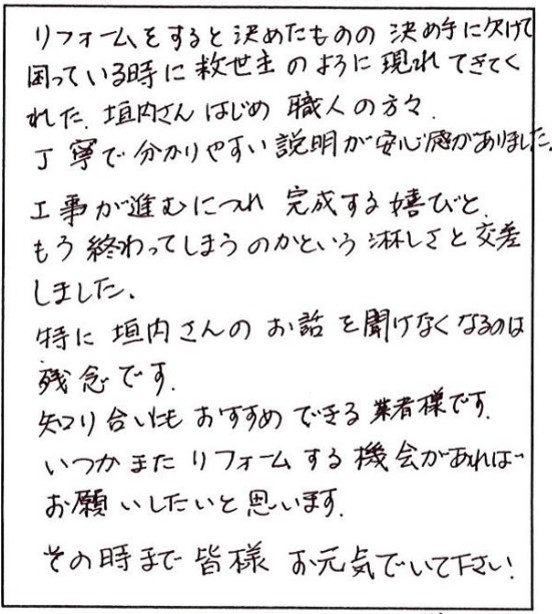 リフォームをすると決めたものの 決め手に欠けて
困っている時に 救世主のように 現れてきてく
れた、垣内さんはじめ 職人の方々、
丁寧で分かりやすい説明が安心感がありました。
工事が進むにつれ 完成する嬉びと、
もう終わってしまうのかという淋しさと交差
しました。
特に 垣内さんの お話を聞けなくなるのは
残念です。
知り合いにも おすすめできる業者様です。
いつかまたリフォームする機会があれば
お願いしたいと思います。
その時まで 皆様 お元気でいて下さい!